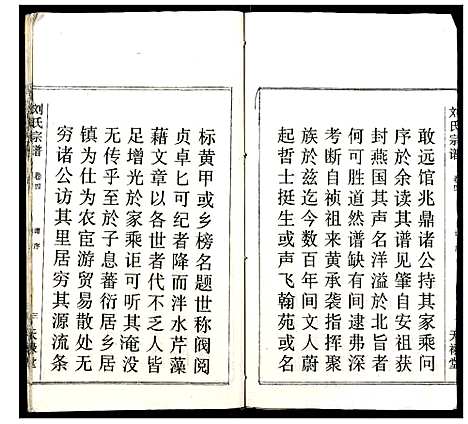 刘氏宗谱
敢远馆兆鼎诸公持其家乘问
序於余读其谱见肇自安祖获
封燕国其声名洋溢於北庭者
何可胜道然谱缺有间逮弗深
考断自祯祖来黄承袭指挥聚
族於兹迄今数百年间文人蔚
起哲士挺生或声飞翰苑或名
标黄甲或乡榜名题世称阀阅
贞卓匕可纪者降而泮水芹藻
藉文章以各世者代不乏人皆
足增光於家乘讵可听其淹没
无传乎至於子息蕃衍居乡居
镇为仕为农宦游贸易散处无
穷诸公访其里居穷其源流条
刘氏宗谱
卷四
谱序
三
天禄堂
天禄堂